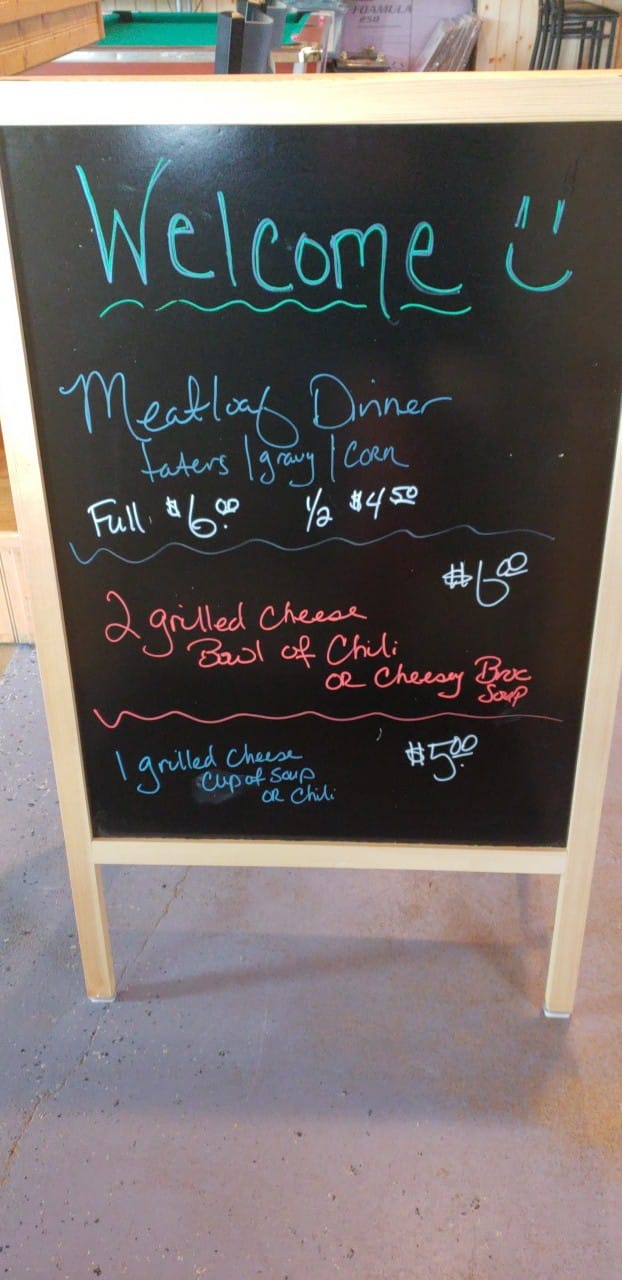 FOAMULAR
250
Welcome
Meatloaf Dinner
taters | gravy | corn
Full $6.00 1/2 $4.50
$6.00
2 grilled cheese
Bowl of Chili
OR Cheesey Broc
Soup
1 grilled cheese
$5.00
Cup of Soup
OR Chili